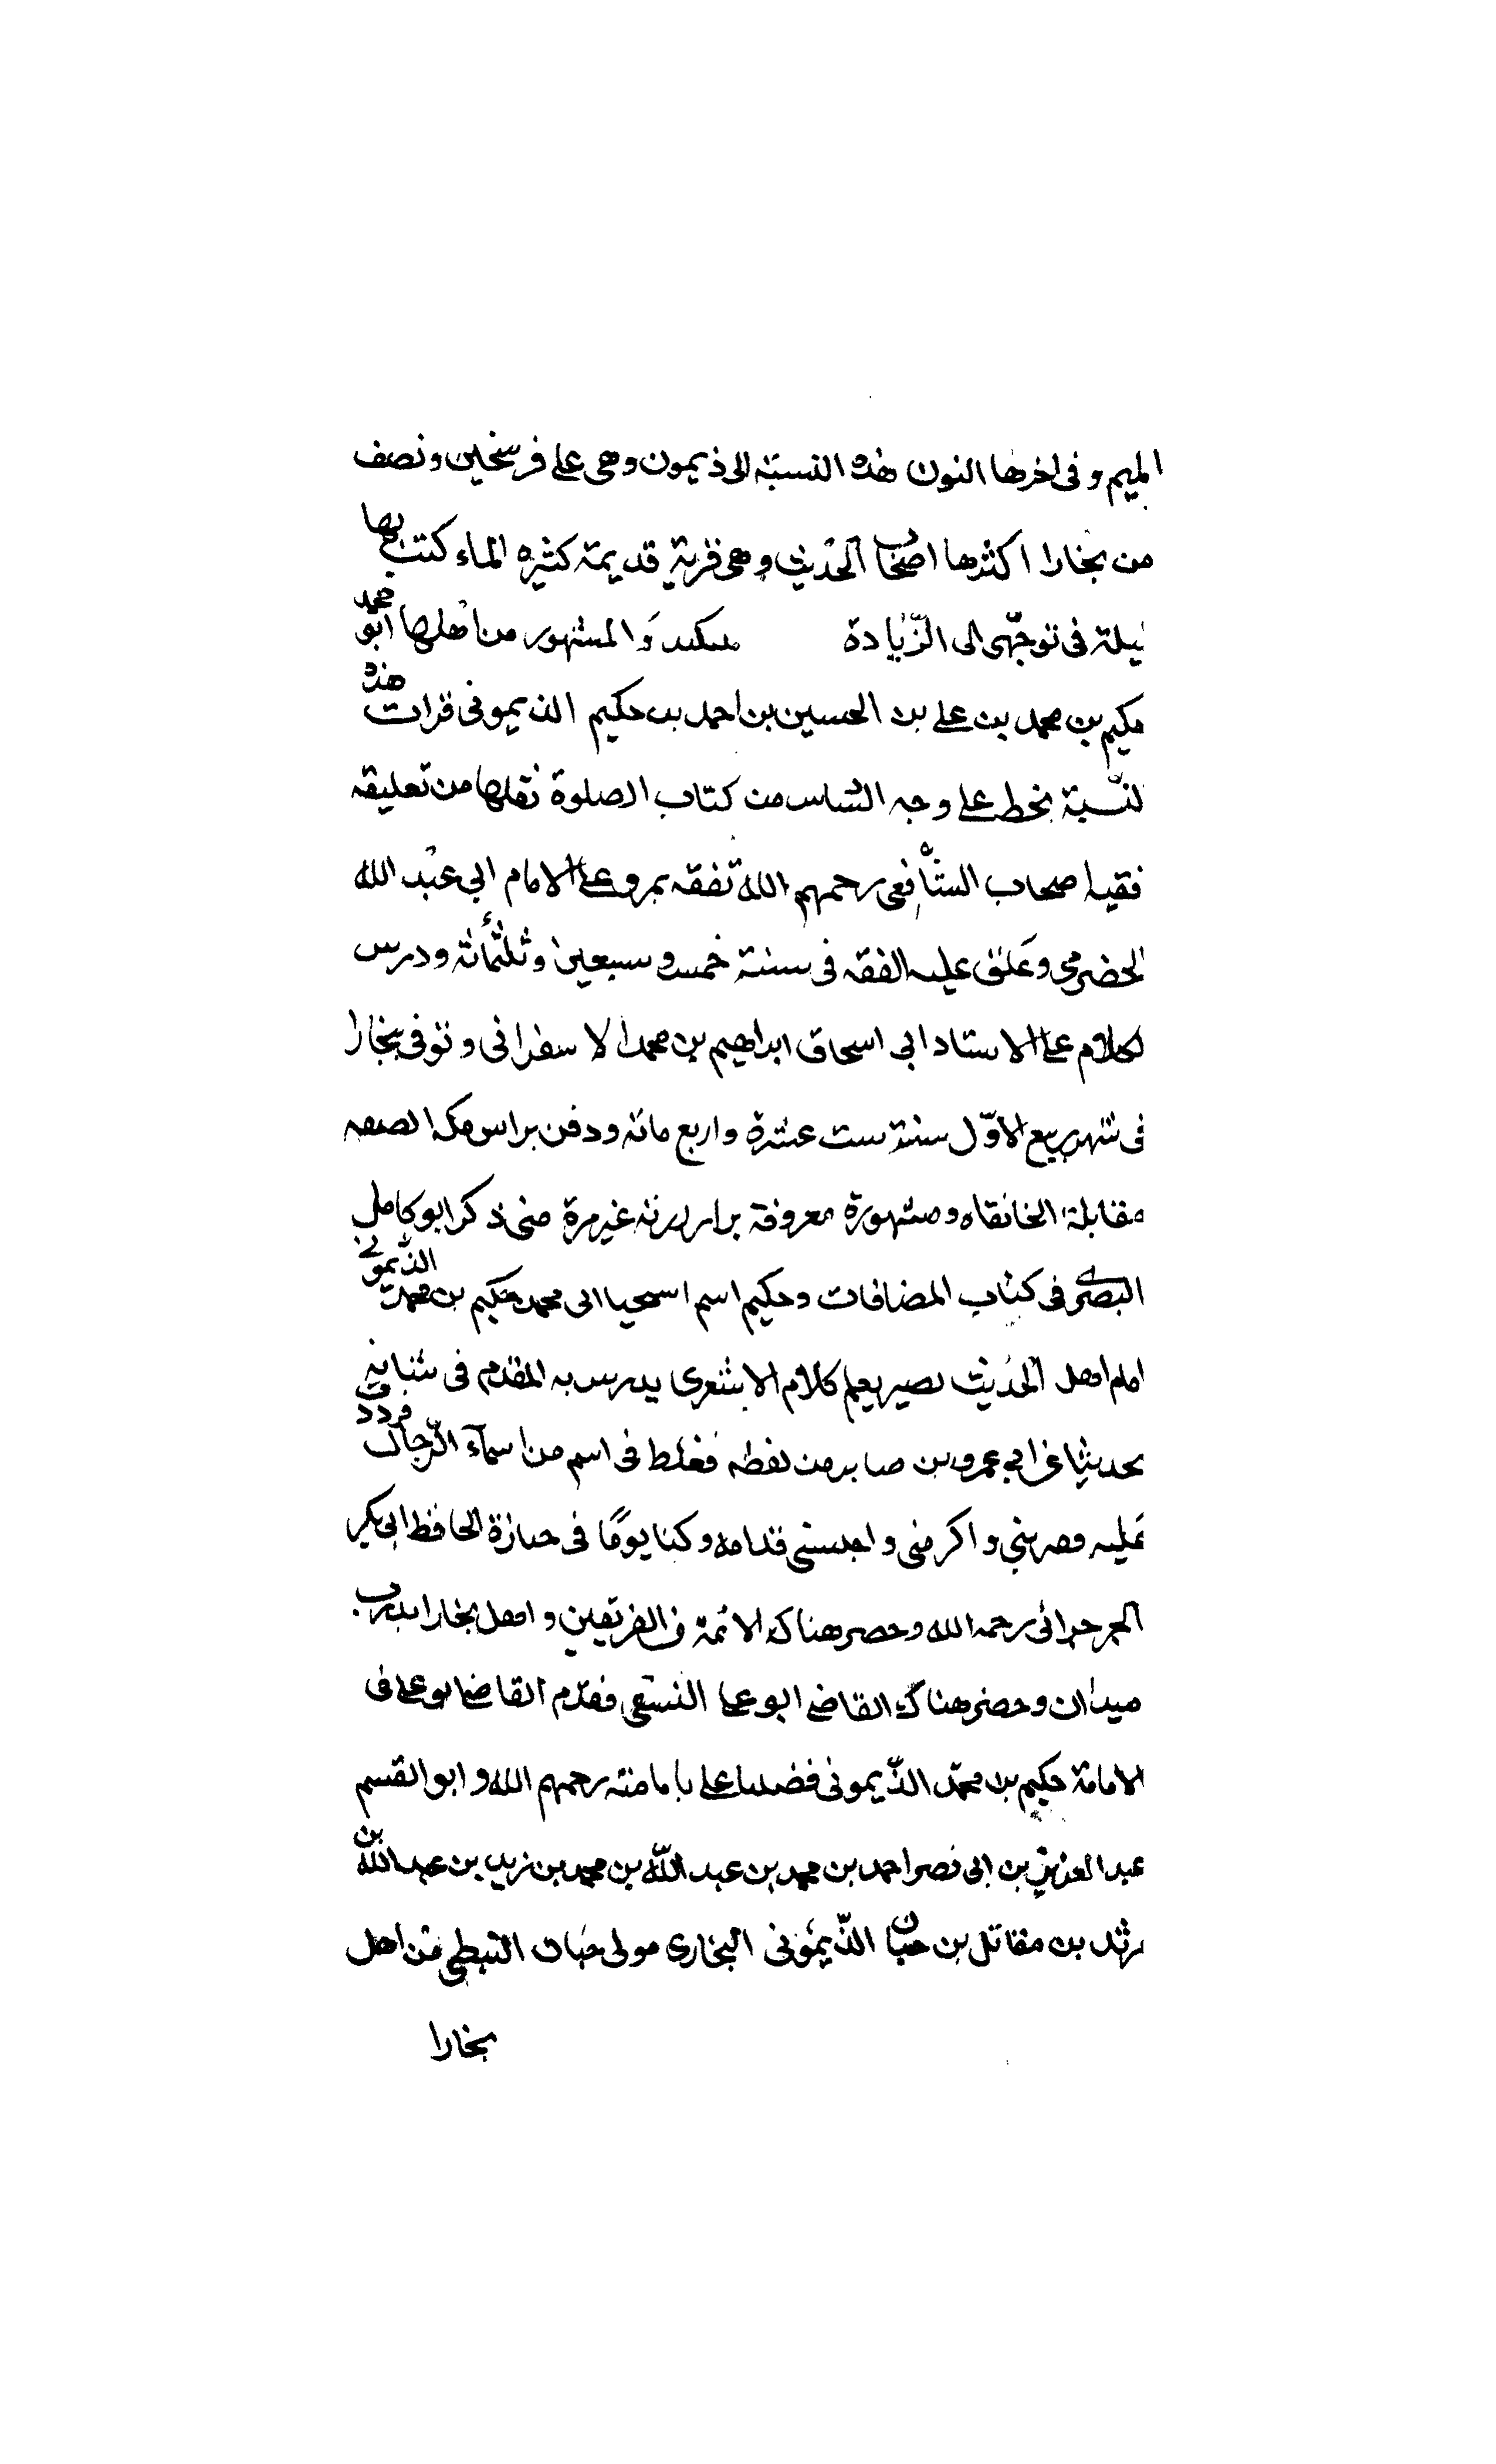 الميم وفى اخرها النون هذه النسبة الى ذيمون وهى على فرسخين ونصف
من بخارا اكثرها اصحاب الحديث وهى قرية قديمة كثيره الماء كتب بها
ليلة فى توجّهى الى الزّيادة والمشهور من اهلها ابو محمد
حكيم بن محمد بن على بن الحسين بن احمد بن حكيم الذيمونى قرات هذه
لنسبة بخط على وجه الشاس من كتاب الصلوة نقلها من تعليقه
فقيه اصحاب الشافعى رحمهم الله تفقه بمرو على الامام ابى عبد الله
الحضرمى وعلق عليه الفقه فى سنة خمس وسبعين وثلثمائة ودرس
لكلام على الاستاد ابى اسحاق ابراهيم بن محمد الاسفرانى وتوفى بخارا
فى شهر ربيع الاوّل سنة ست عشرة واربع مائة ودفن براس الصفه
مقابلة الخانقاه ومشهورة معروفة غير مرة ذكر ابو كامل
البصرى فى كتاب المضافات وحكيم اسم محمد حكيم بن محمد الذيمونى
امام اهل الحديث بصير بعلم كلام الاشعرى يدرس به المقدم فى شبابه
ابى عمرو بن صابر من لفظه فغلط فى اسم من اسمآء الرّجال فردد
عليه واكرمنى واجلسنى قدامه وكنا يومًا فى جنازة الحافظ ابى بكر
الجرجرائى رحمه الله وحصر هناك الائمة الفريقين واهل بخارا
ميدان وحضر هناك القاضى ابو على النسفى فقدّم القاضى ابو على فى
الامامة حكيم بن محمّد الذّيمونى بامامته رحمهم الله وابو القسم
عبد العزيز بن ابى نصر احمد بن محمد بن عبد اللّه بن محمد بن بن عبد الله بن
مرثد بن مقاتل بن حيان الذّيمونى البخارى مولى حيان النبطى من اهل
بخارا